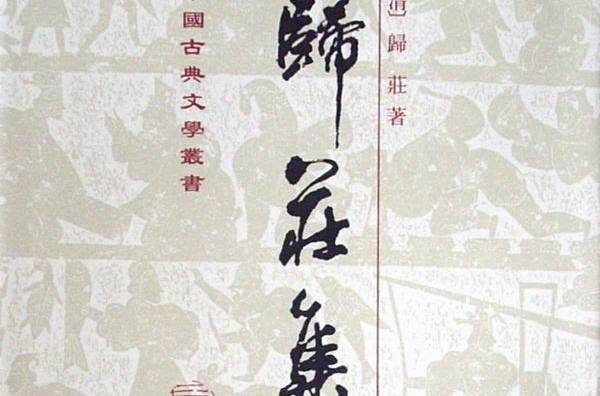 清］歸莊著
歸莊集
國古典文學叢書